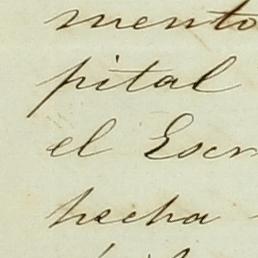 mento
pital
el Escr
hecha